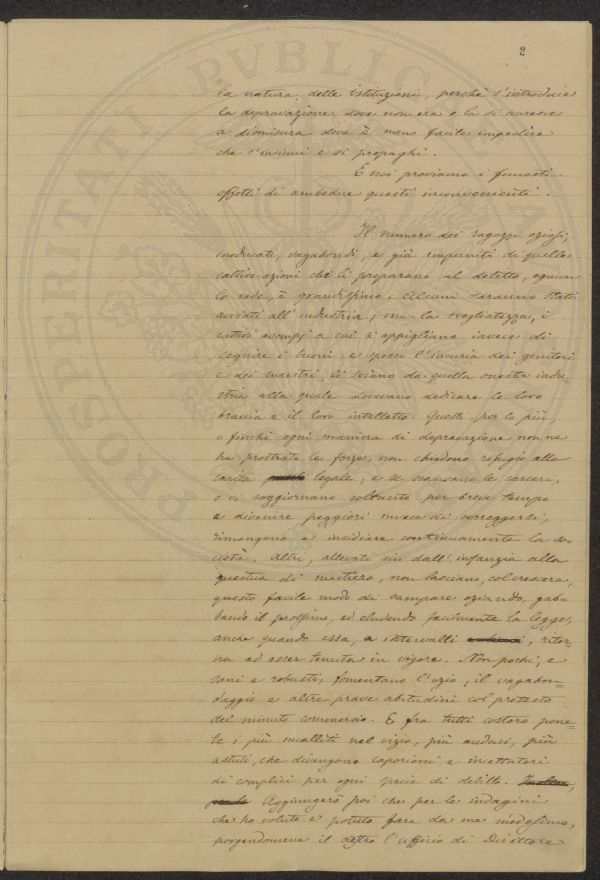 2
la natura delle istituzioni, perchè s'introduce
la depravazione dove non era e la si accresce
a dismisura dove è meno facile impedire
che s'insinui e si propaghi.
E noi proviamo i funesti
effetti di ambedue questi inconvenienti.
Il numero dei ragazzi oziosi,
ineducati, vagabondi, e già impuniti di quelle
cattive azioni che li preparano al delitto, ognun
lo vede, è grandissimo. Alcuni saranno stati
avviati all'industria; ma la svogliatezza, i
cattivi esempj a cui s'appigliano invece di
seguire i buoni, e spesso l'incuria dei genitori
e dei maestri, li sviano da quella onesta indu-
stria alla quale dovevano dedicare le loro
braccia e il loro intelletto. Questi per lo più,
o finchè ogni maniera di depravazione non ne
ha prostrate le forze, non chiedono refugio alla
carità legale; e se scansano le carceri,
o vi soggiornano soltanto per breve tempo
a divenire peggiori invece di correggersi,
rimangono a insidiare continuamente la so-
cietà. Altri, allevati sin dall'infanzia alla
questua di mestiero, non lasciano, col crescere,
questo facile modo di campare oziando, gab-
bando il prossimo, ed eludendo facilmente la legge,
anche quando essa, a intervalli, ritor-
na ad esser tenuta in vigore. Non pochi, e
sani e robusti, fomentano l'ozio, il vagabon-
daggio e altre prave abitudini col pretesto
del minuto commercio. E fra tutti costoro pone-
te i più incalliti nel vizio, più audaci, più
astuti, che divengono caporioni e incettatori
di complici per ogni specie di delitto.
Aggiungerò poi che per le indagini
che ho voluto e potuto fare da me medesimo,
porgendomene il destro l'ufficio di Direttore
PROSPERITATI PVBLIC